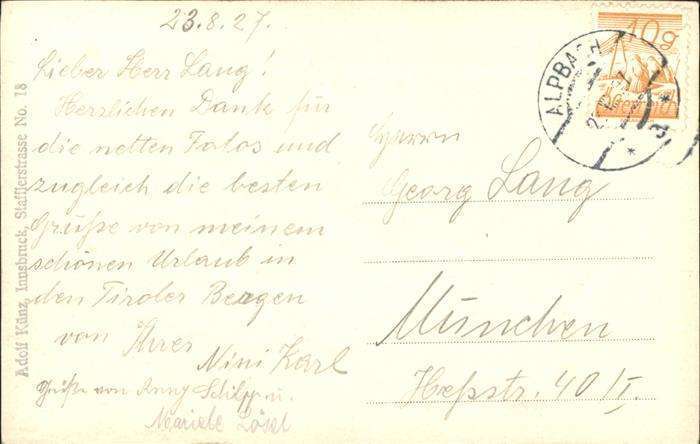 23.8.27.
Lieber Herr Lang!
Herzlichen Dank für
die netten Fotos und
zugleich die besten
Grüße von meinem
schönen Urlaub in
den Tiroler Bergen
von Ihrer
Nini Karl
Grüße von Anny u.
Adolf Künz, Innsbruck, Stafflerstrasse No. 18
10g
ALPBACH
Herrn
Georg Lang
München
Heßstr. 40/I.